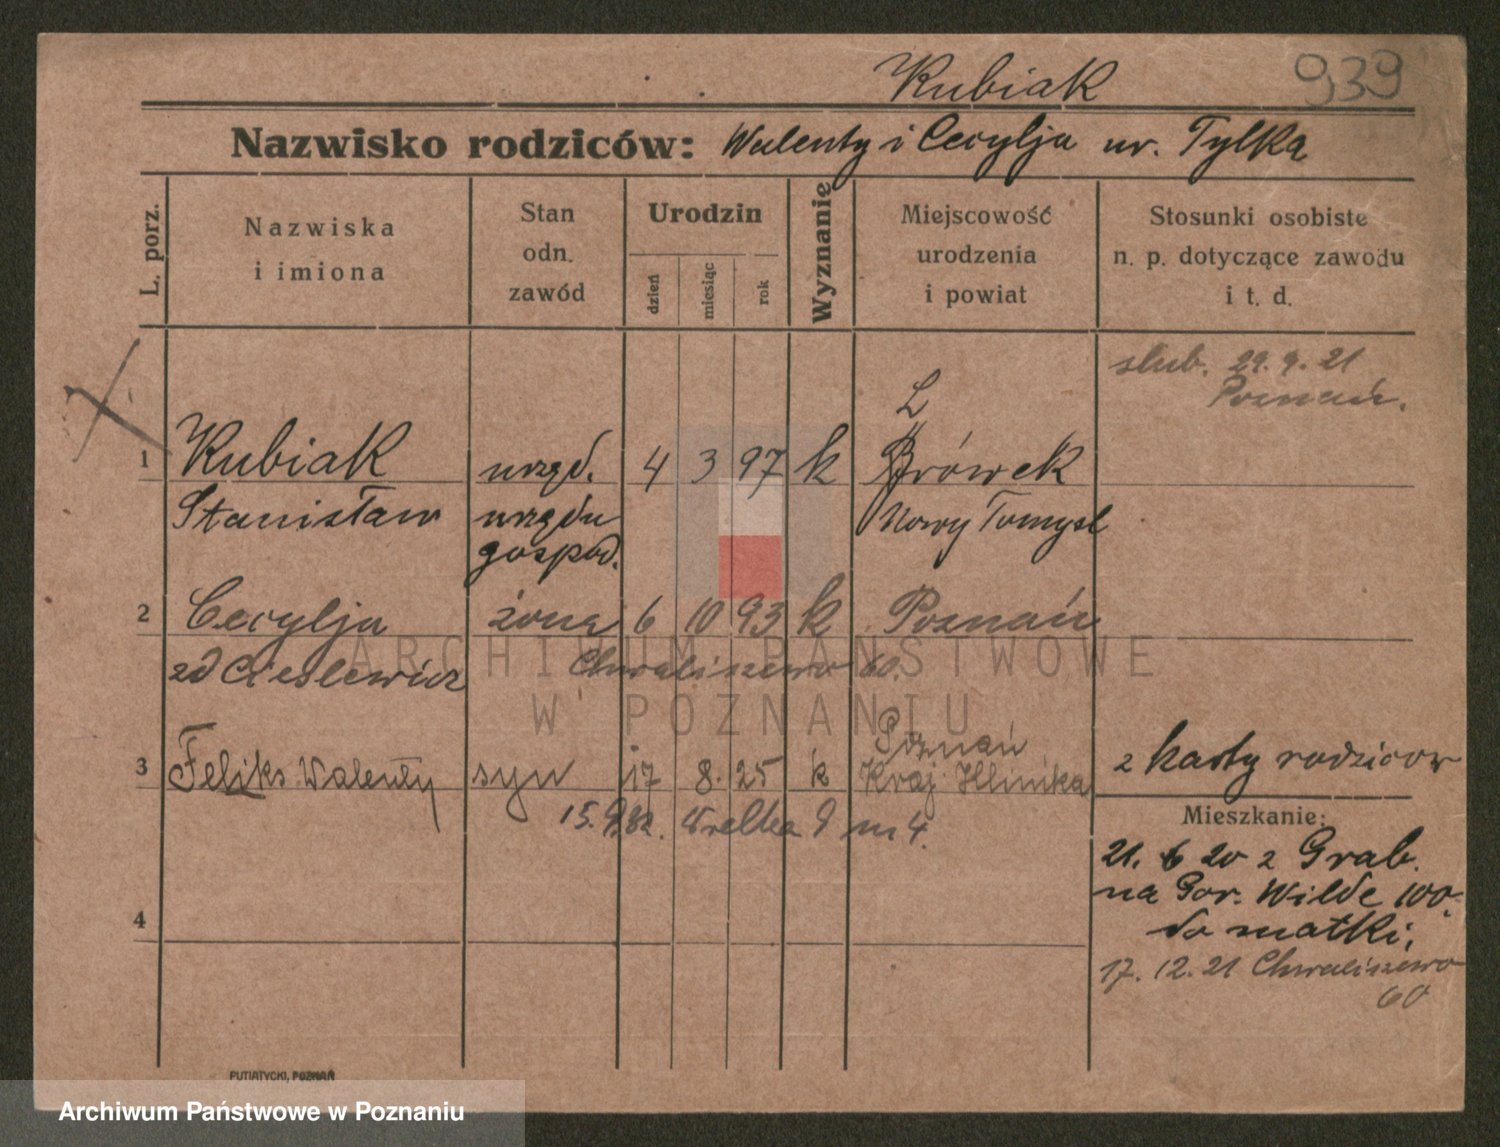 Kubiak 939
Nazwisko rodziców: Walenty i Cecylja ur. Tylka
L. porz.
Nazwiska
i imiona
Stan
odn.
zawód
Urodzin
dzień
miesiąc
rok
Wyznanie
Miejscowość
urodzenia
i powiat
Stosunki osobiste
n. p. dotyczące zawodu
i t. d.
ślub. 29. 9. 21
Poznań.
1 Kubiak urzęd. 4 3 97 k Brówek
Stanisław urzędu Nowy Tomysl
gospod.
2 Cecylja żona 6 10 93 k Poznań
zd Cieslewicz Chwaliszewo 60.
Poznań
3 Feliks Walenty syn 17 8. 25 k Kraj. Klinika
z karty rodziców
15. 9. 32. Wielka 9 m 4.
Mieszkanie:
21. 6 20 z Grab.
na Gor. Wilde 100.
do matki,
17. 12. 21 Chwaliszewo
60
4
PUTIATYCKI, POZNAŃ
ARCHIWUM PAŃSTWOWE
W POZNANIU
Archiwum Państwowe w Poznaniu